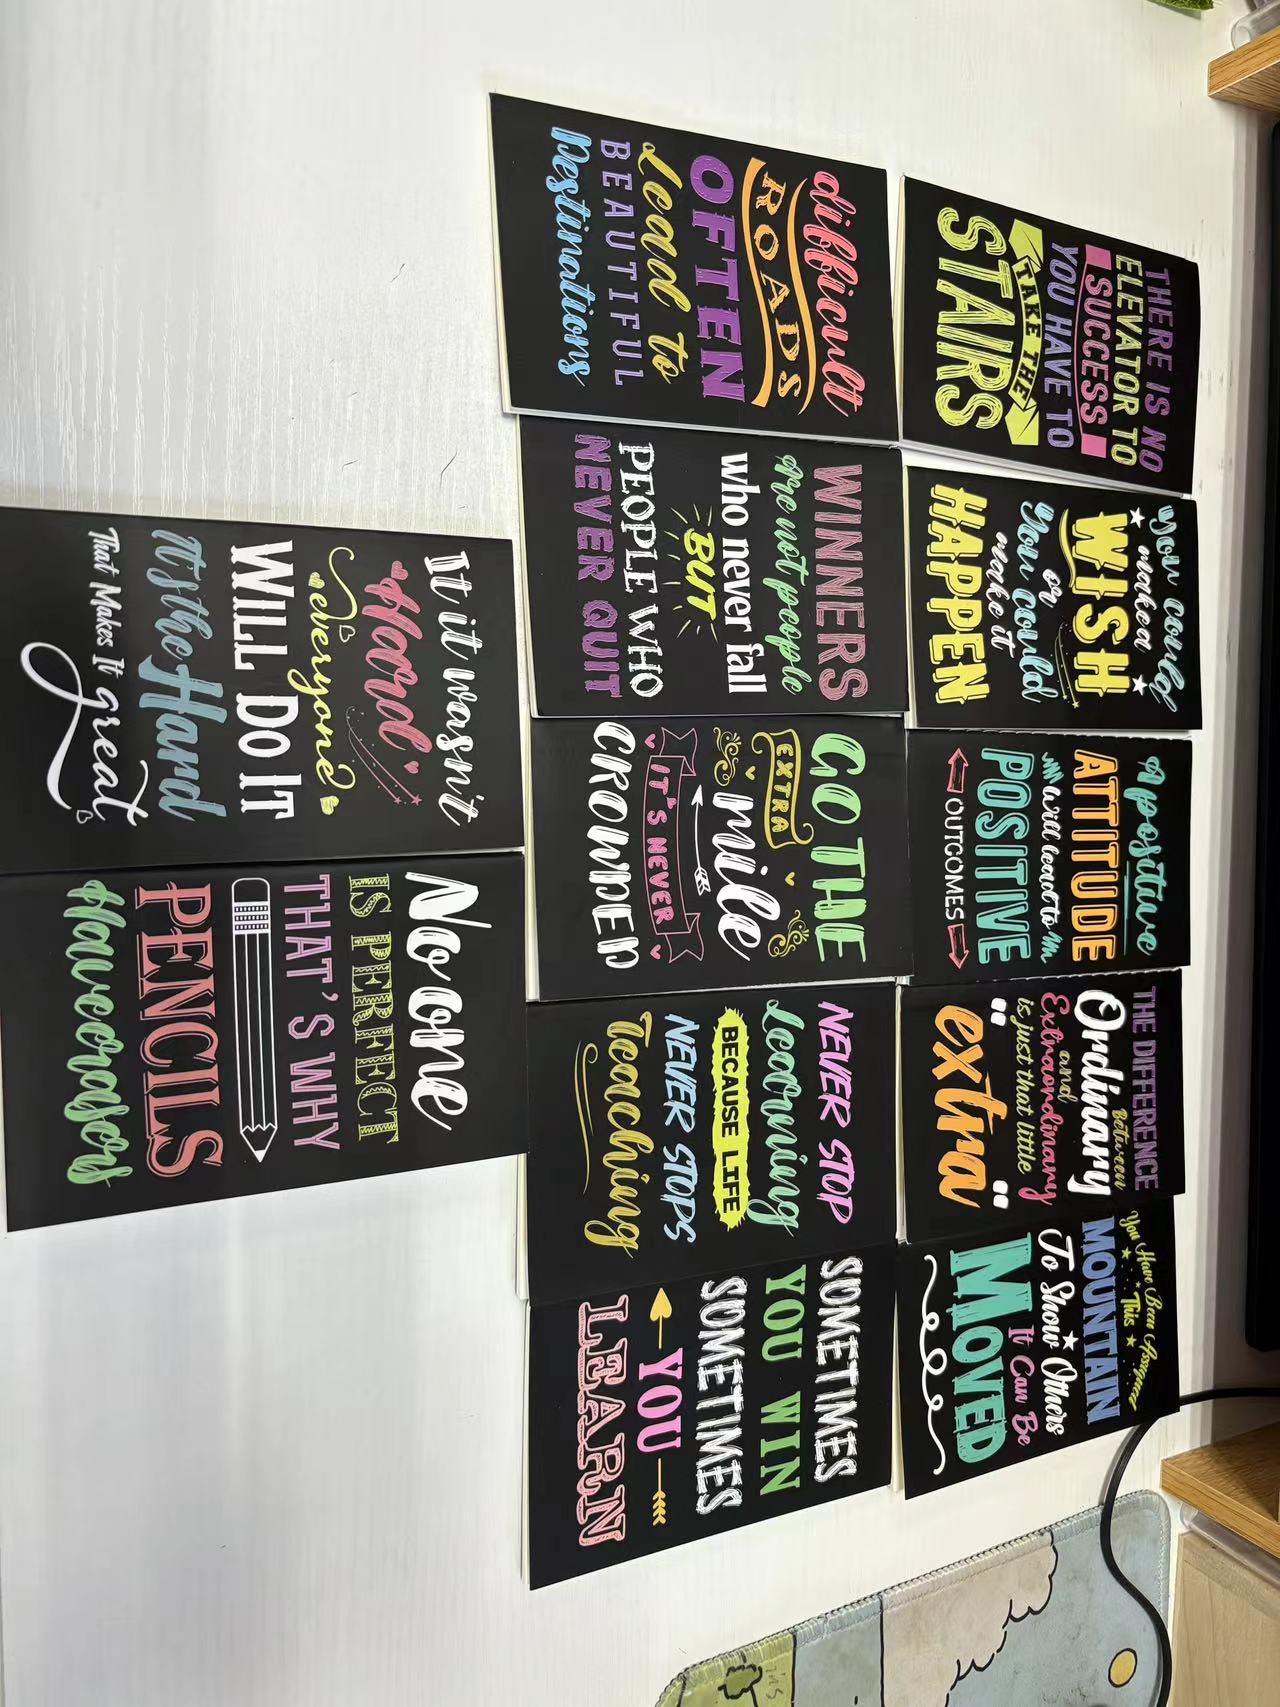 THERE IS NO
ELEVATOR TO
SUCCESS
YOU HAVE TO
TAKE THE
STAIRS
You could
make a
WISH
or
You could
make it
HAPPEN
A positive
ATTITUDE
will lead to
POSITIVE
OUTCOMES
THE DIFFERENCE
Between
Ordinary
and
Extraordinary
is just that little
"extra"
You Have Been Assigned
This
MOUNTAIN
To Show Others
It Can Be
MOVED
difficult
ROADS
OFTEN
Lead to
BEAUTIFUL
Destinations
WINNERS
Are not people
who never fail
BUT
PEOPLE WHO
NEVER QUIT
GO THE
EXTRA
mile
IT'S NEVER
CROWDED
NEVER STOP
Learning
BECAUSE LIFE
NEVER STOPS
Teaching
SOMETIMES
YOU WIN
SOMETIMES
YOU
LEARN
If it wasn't
Hard
everyone
WILL DO IT
It's the Hard
That Makes It great
No one
IS PERFECT
THAT'S WHY
PENCILS
Have erasers